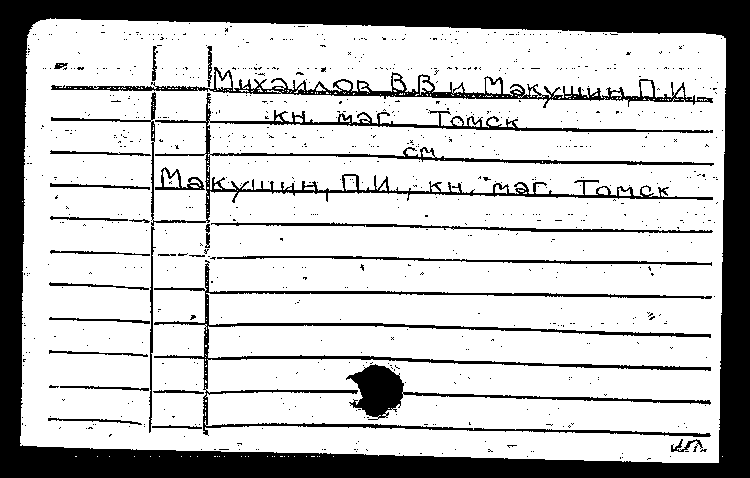 Михайлов В.В и Макушин, П.И.,
кн. маг. Томск
см.
Макушин, П.И., кн. маг. Томск